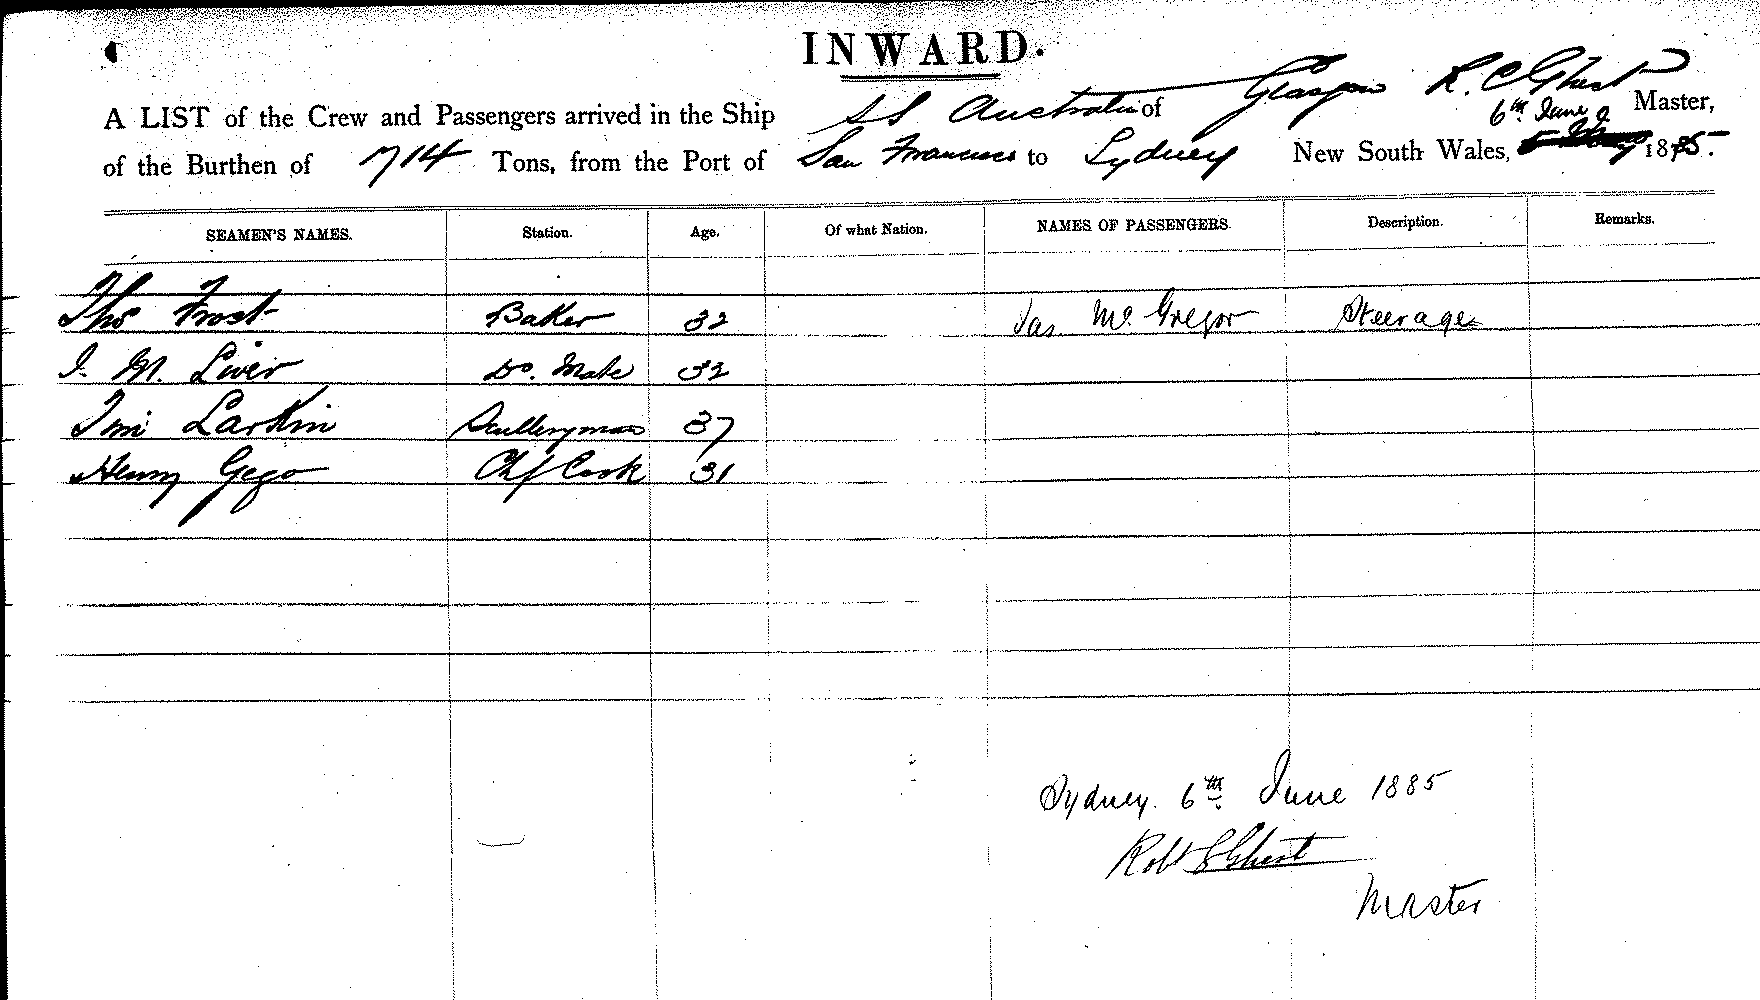 INWARD.
A LIST of the Crew and Passengers arrived in the Ship SS Australia of Glasgow R. C Ghest Master,
of the Burthen of 1714 Tons, from the Port of San Francisco to Sydney New South Wales, 6th June 1885.
SEAMEN'S NAMES. Station. Age. Of what Nation. NAMES OF PASSENGERS. Description. Remarks.
Thos Frost Baker 32 Jas McGregor Steerage
J. M. Do. Mate 32
Tim Larkin Sculleryman 37
Henry Gego Chf Cook 31
Sydney. 6th June 1885
Robt Ghest
Master